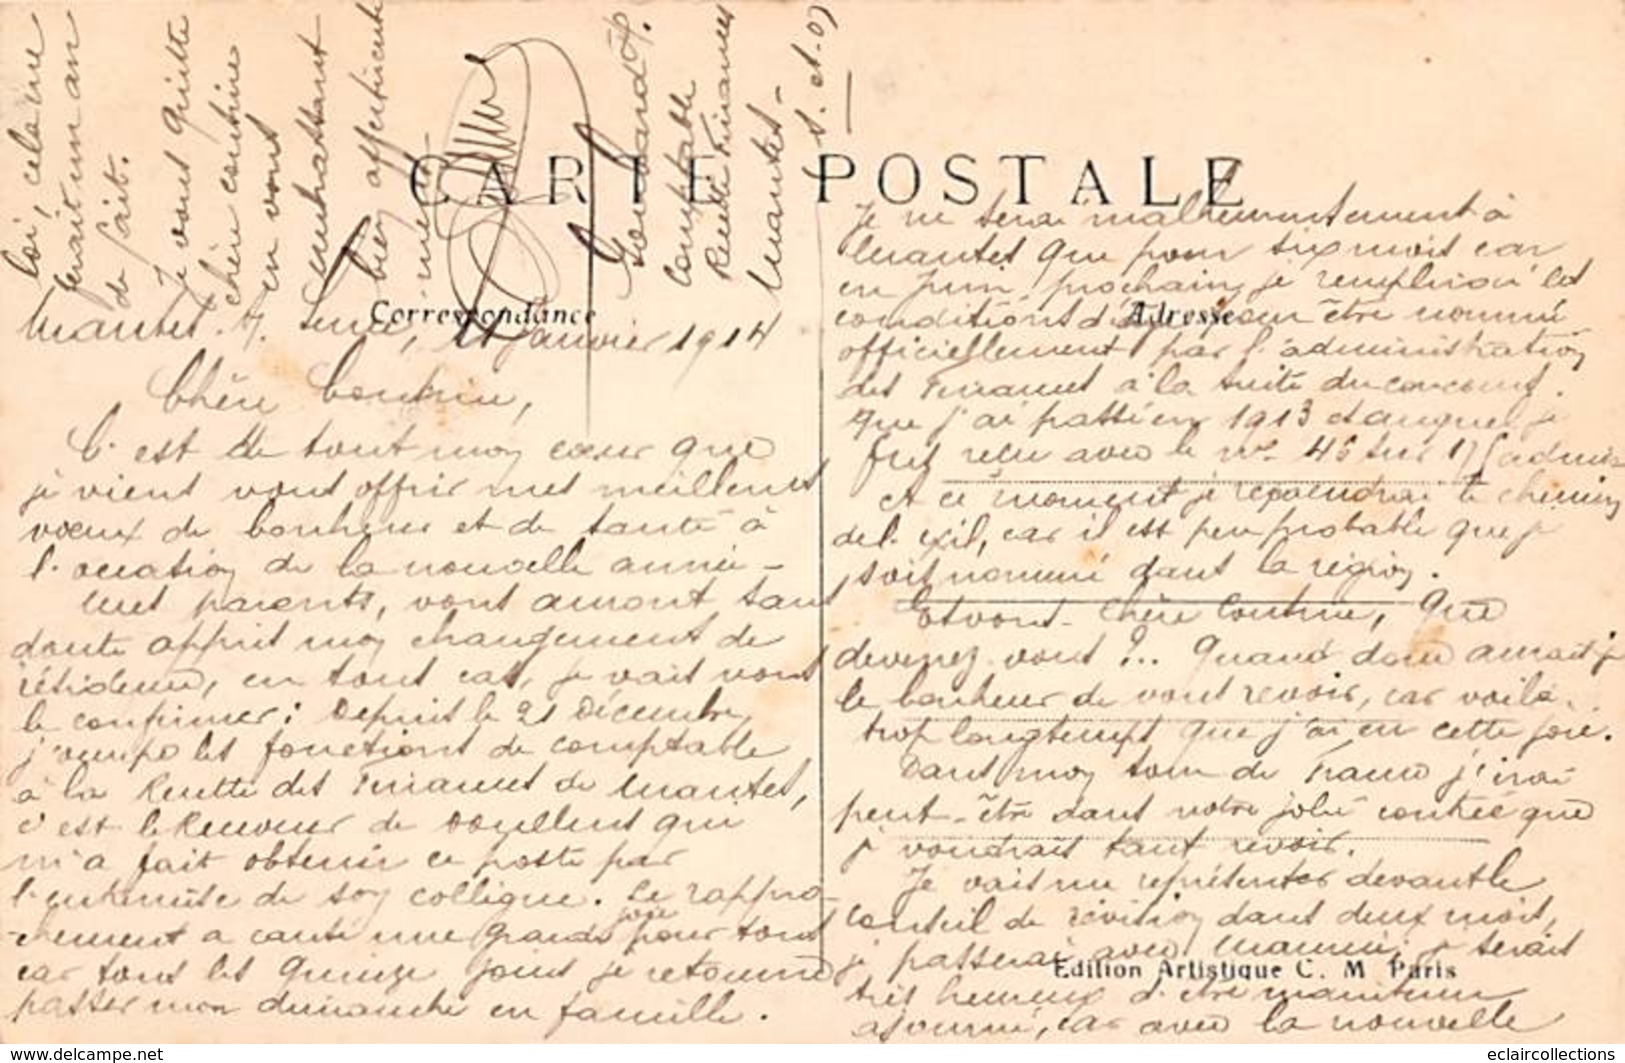 CARTE POSTALE
Correspondance
Adresse
Mantes s. Seine, Janvier 1914
Chère Cousine,
C'est de tout mon cœur que
je viens vous offrir mes meilleurs
vœux de bonheur et de santé à
l'occasion de la nouvelle année -
Mes parents, vous auront sans
doute appris mon changement de
résidence, en tout cas, je vais vous
le confirmer : Depuis le 21 Décembre,
j'occupe les fonctions de comptable
à la Recette des Finances de Mantes,
c'est le Receveur de Doullens qui
m'a fait obtenir ce poste par
l'entremise de son collègue. Ce rappro-
chement a causé une grande joie pour tous
car tous les quinze jours je retourne
passer mon dimanche en famille.
Je ne serai malheureusement à
Mantes que pour six mois car
en Juin prochain, je remplirai les
conditions d'âge pour être nommé
officiellement par l'administration
des Finances à la suite du concours
que j'ai passé en 1913 et auquel je
fus reçu avec le no 46 sur admis
A ce moment je reprendrai le chemin
de l'exil, car il est peu probable que je
sois nommé dans la région.
Et vous Chère Cousine, que
devenez-vous ?... Quand donc aurais-je
le bonheur de vous revoir, car voilà
trop longtemps que j'ai eu cette joie.
Dans mon tour de France j'irai
peut-être dans votre jolie contrée que
je voudrais tant revoir.
Je vais me représenter devant le
Conseil de révision dans deux mois,
je passerai avec Maurice, je serais
très heureux d'être maintenu
ajourné, car avec la nouvelle
Edition Artistique C. M Paris
loi, cela me
ferait un an
de fait.
Je vous quitte
chère cousine
en vous
embrassant
bien affectueuse
ment.
Comptable
Recette Finances
Mantes -
S. et O)
www.delcampe.net
eclaircollections